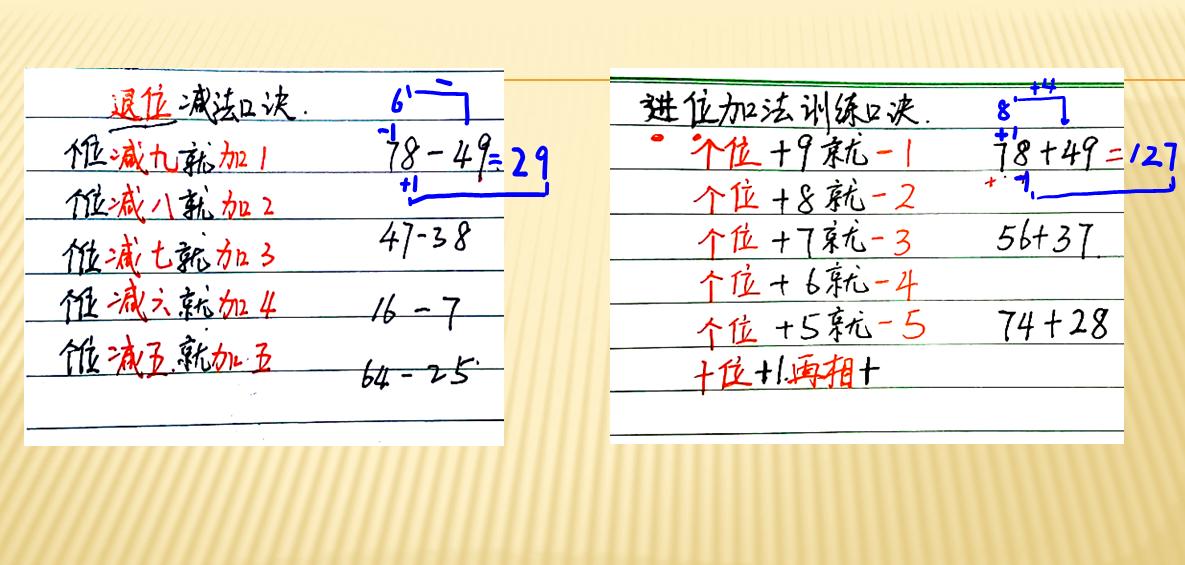 退位减法口诀.
个位减九就加1
个位减八就加2
个位减七就加3
个位减六就加4
个位减五.就加五
6 −
-1
78-49=29
+1
47-38
16-7
64-25
进位加法训练口决.
个位+9就-1
个位+8就-2
个位+7就-3
个位+6就-4
个位+5就-5
十位+1.再相+
8 +4
+1
78+49=127
+ -1
56+37.
74+28